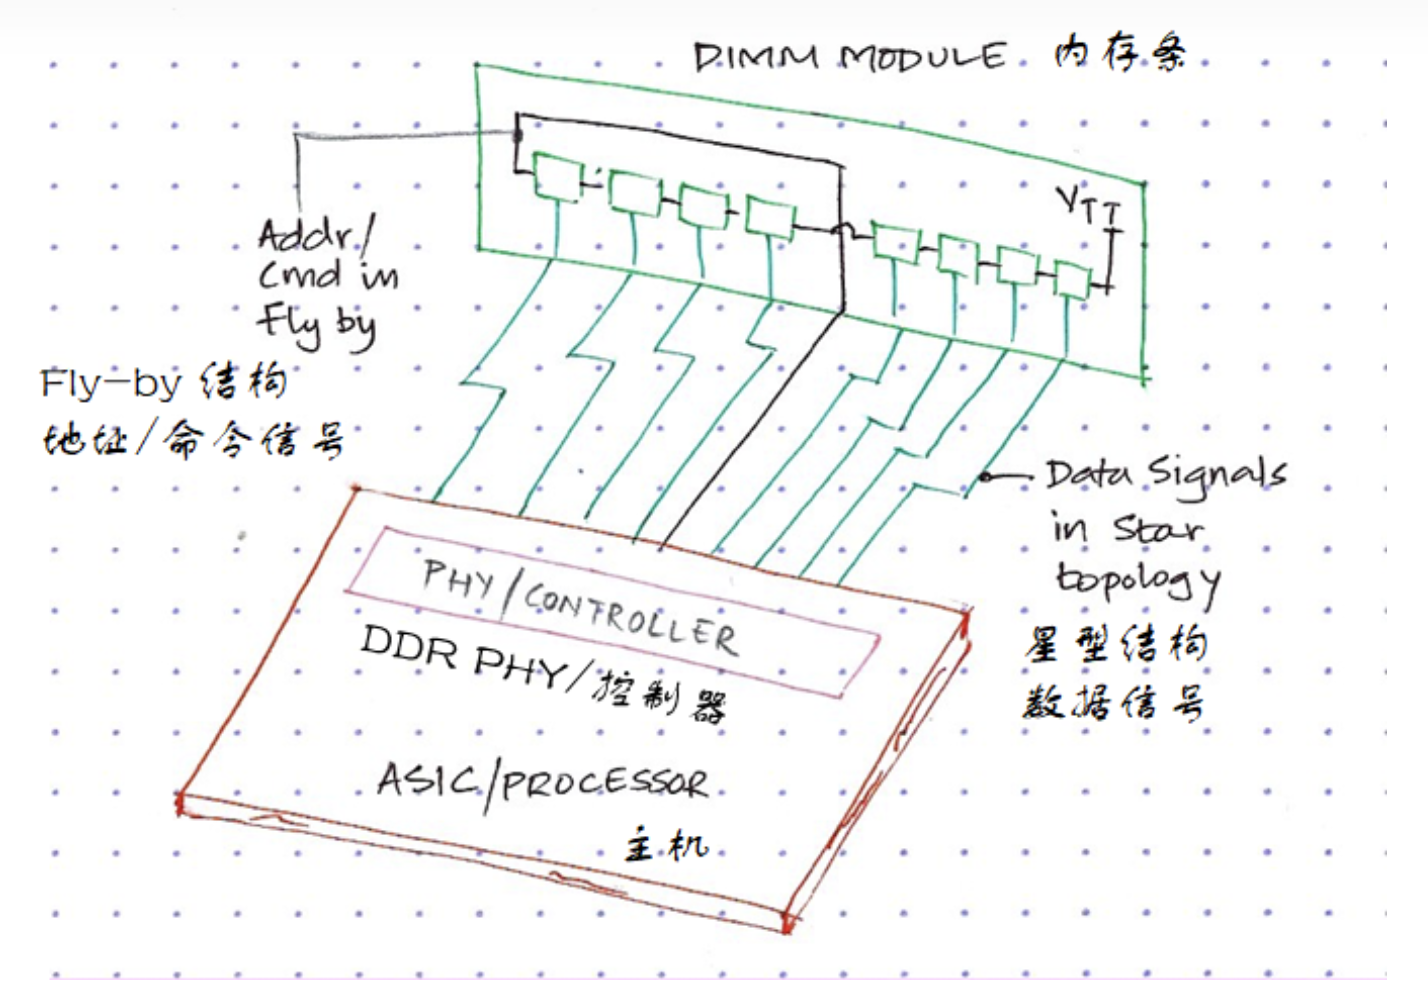 DIMM MODULE 内存条
VTT
Addr/
Cmd in
Fly by
Fly-by 结构
地址/命令信号
Data Signals
in Star
topology
星型结构
数据信号
PHY/CONTROLLER
DDR PHY/控制器
ASIC/PROCESSOR
主机